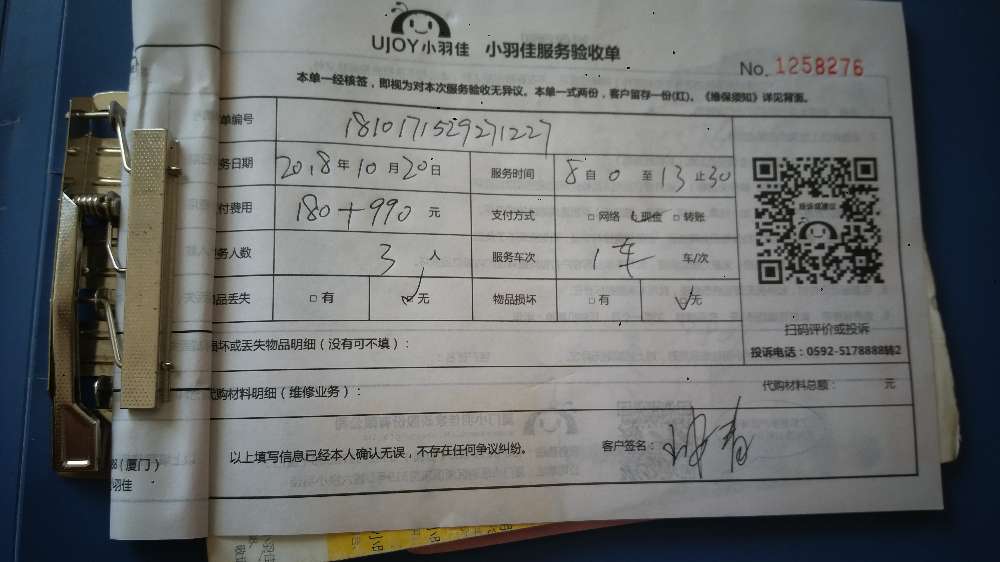 UJOY小羽佳 小羽佳服务验收单
No. 1258276
本单一经核签，即视为对本次服务验收无异议。本单一式两份，客户留存一份(红)。《维保须知》详见背面。
单编号 1810171529271227
务日期 2018年10月20日 服务时间 8自0至13止30
付费用 180+990元 支付方式 □网络 现金 □转账
务人数 3人 服务车次 1车 车/次
品丢失 □有 □无 物品损坏 □有 □无
投诉或建议
扫码评价或投诉
投诉电话：0592-5178888转2
损坏或丢失物品明细（没有可不填）：
代购材料明细（维修业务）： 代购材料总额： 元
以上填写信息已经本人确认无误，不存在任何争议纠纷。 客户签名：
88（厦门）
小羽佳